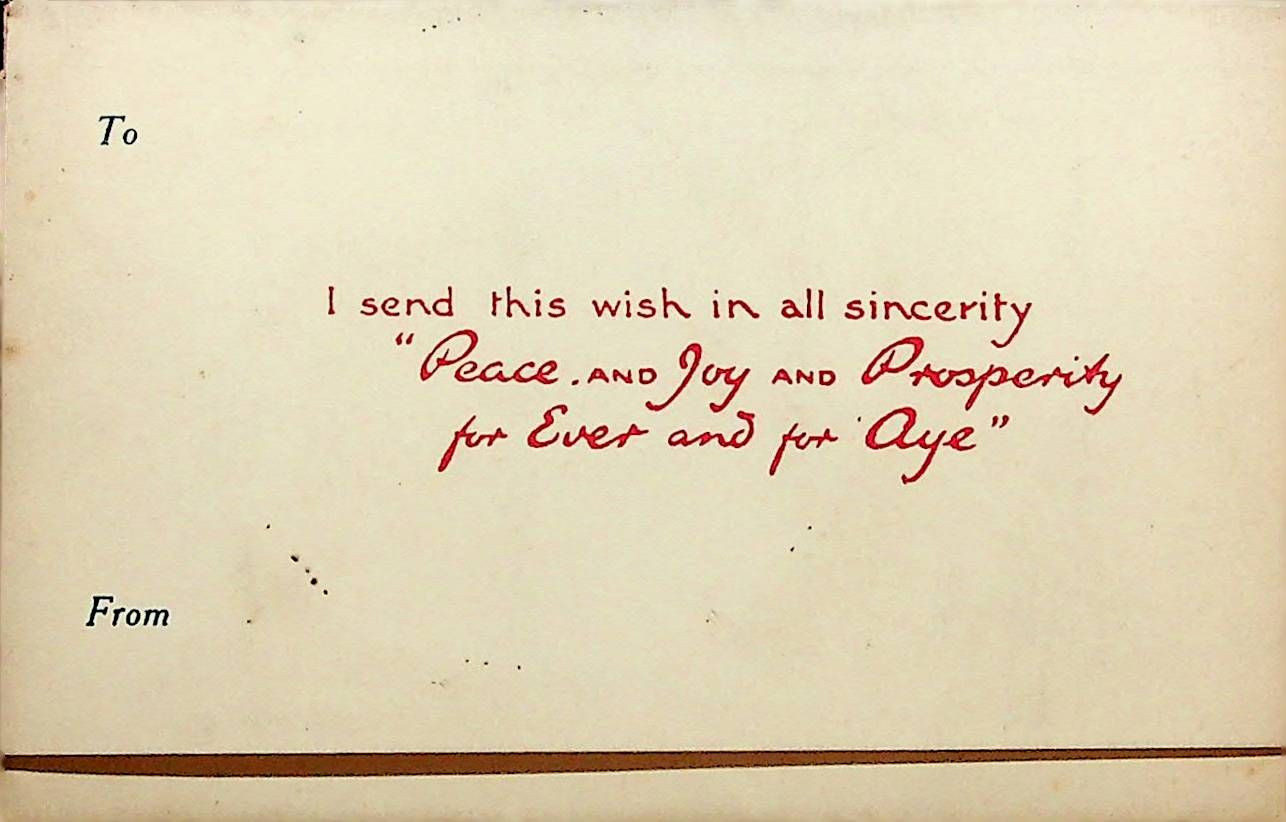 To
I send this wish in all sincerity
"Peace. AND Joy AND Prosperity
for Ever and for Aye"
From